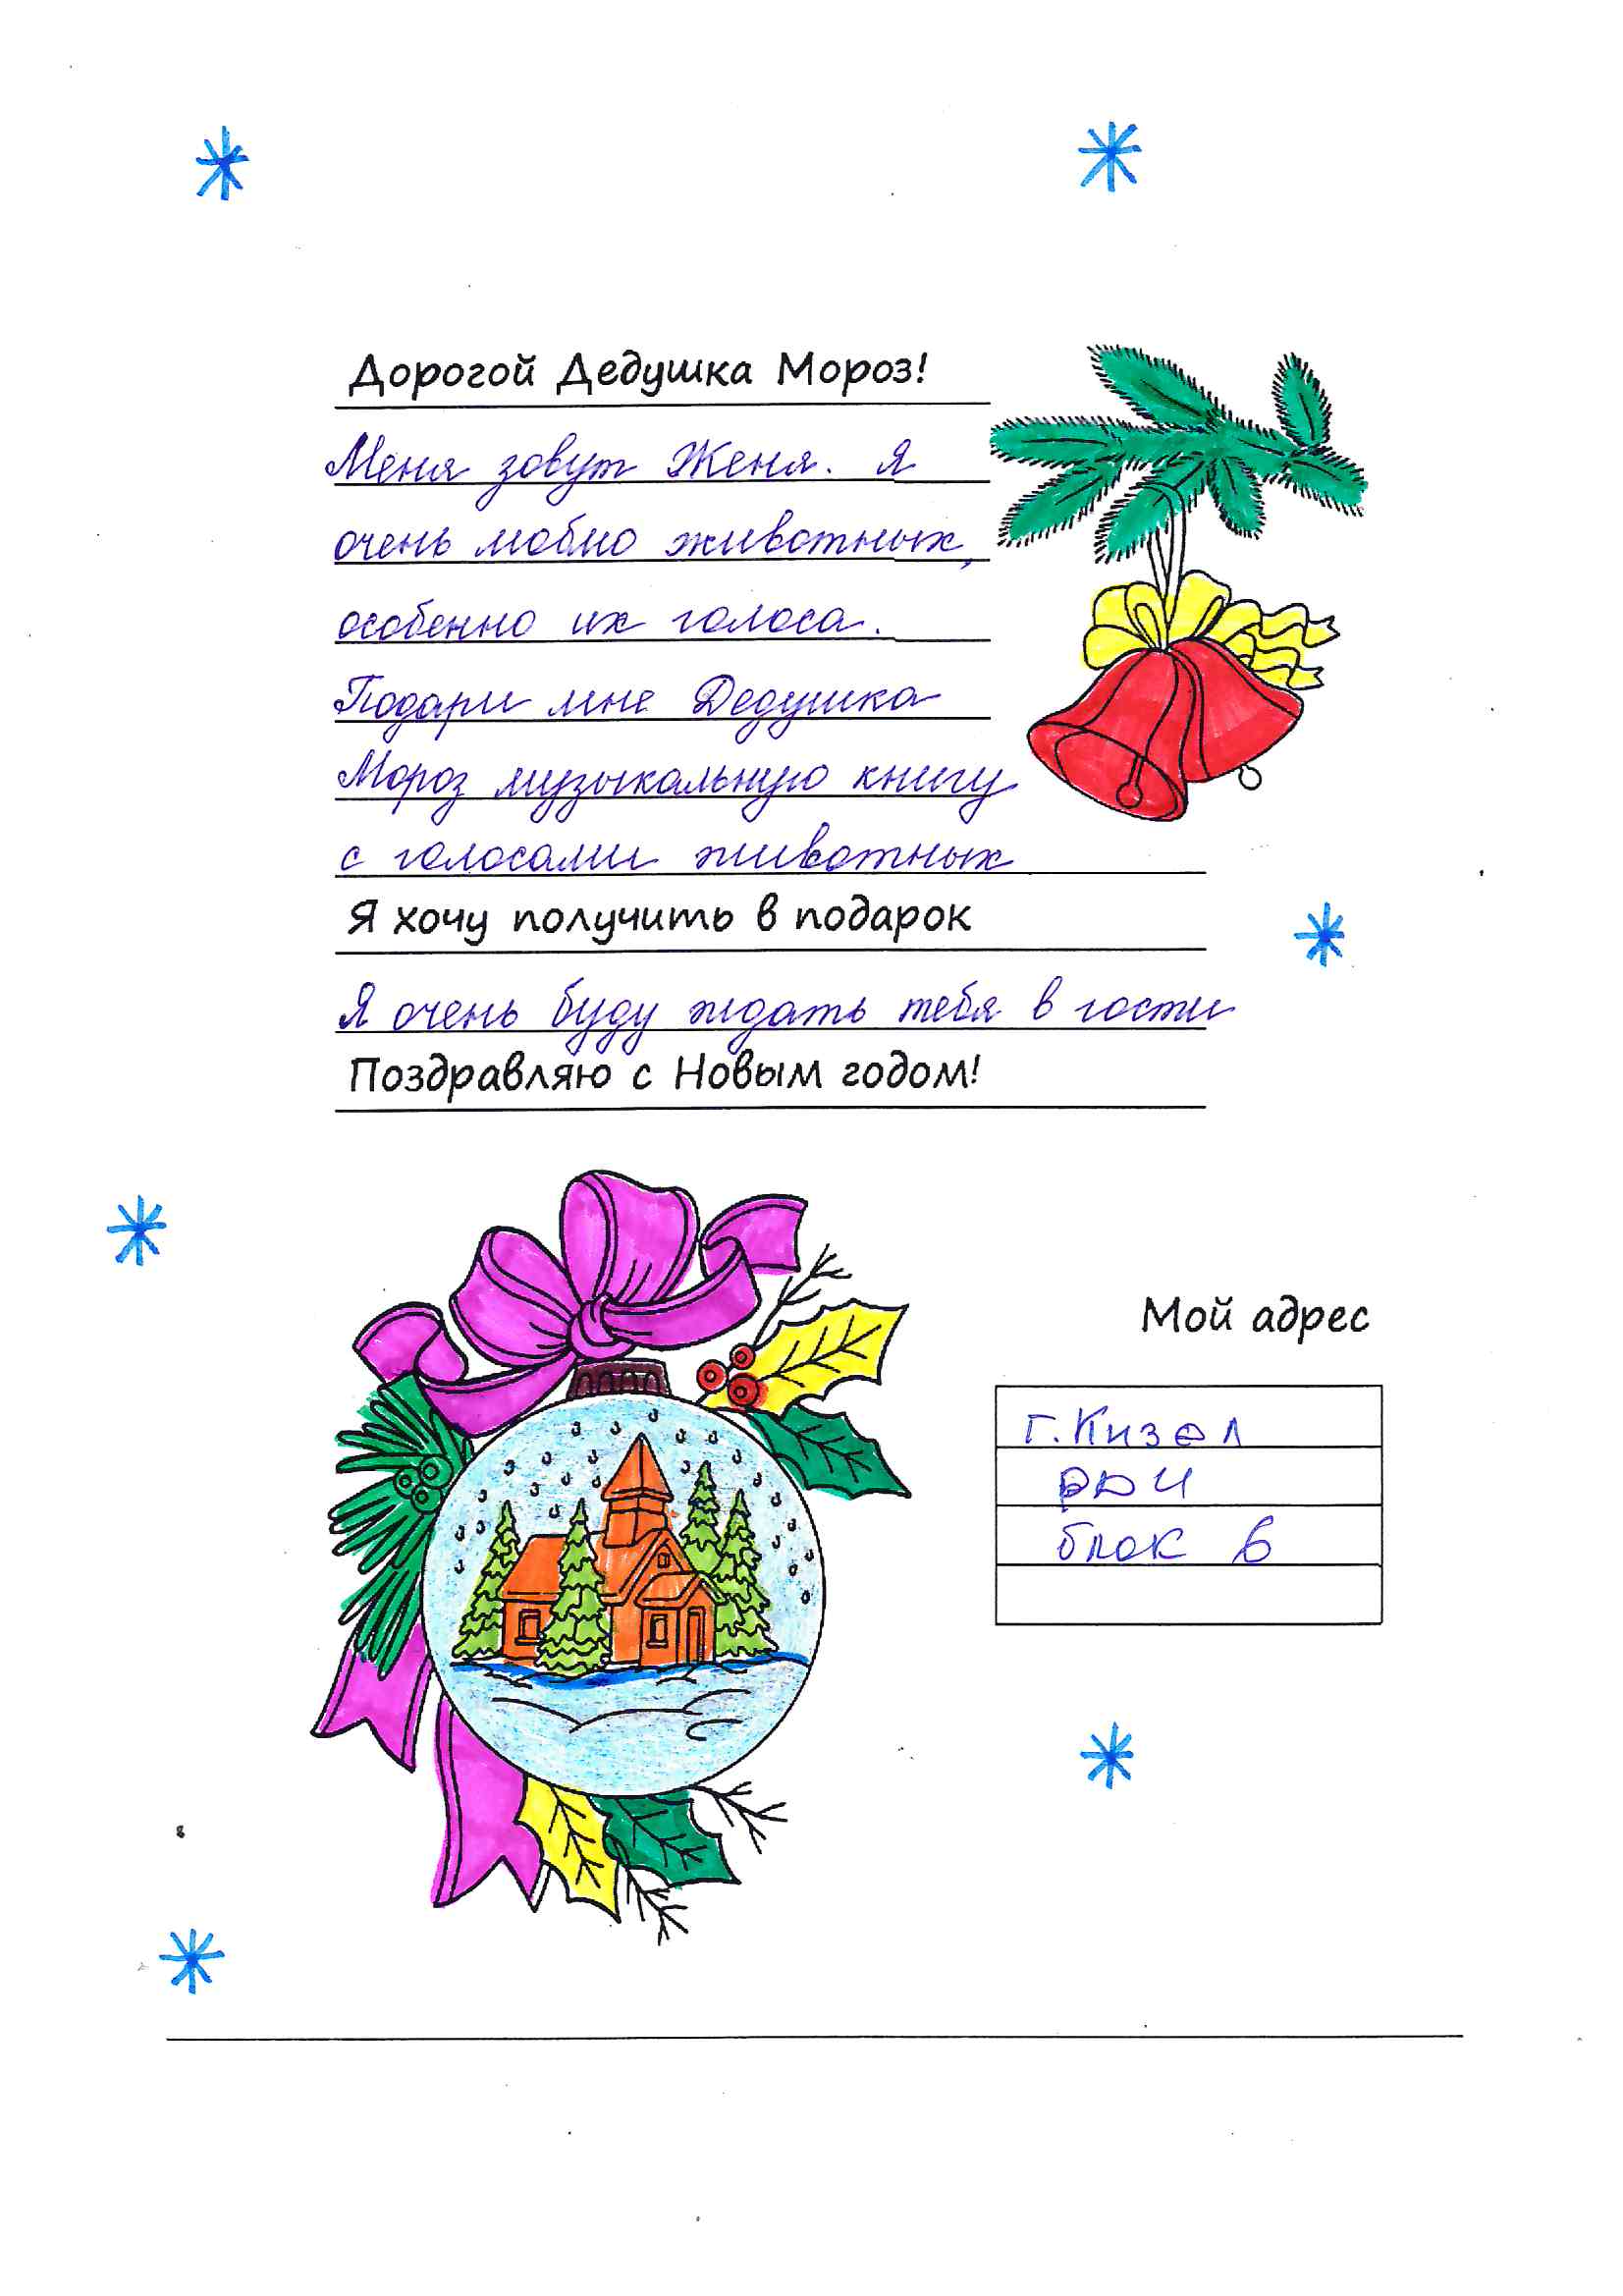 Дорогой Дедушка Мороз!
Меня зовут Женя. Я
очень люблю животных,
особенно их голоса.
Подари мне Дедушка
Мороз музыкальную книгу
с голосами животных
Я хочу получить в подарок
Я очень буду ждать тебя в гости
Поздравляю с Новым годом!
Мой адрес
г. Кизел
РДИ
блок 6